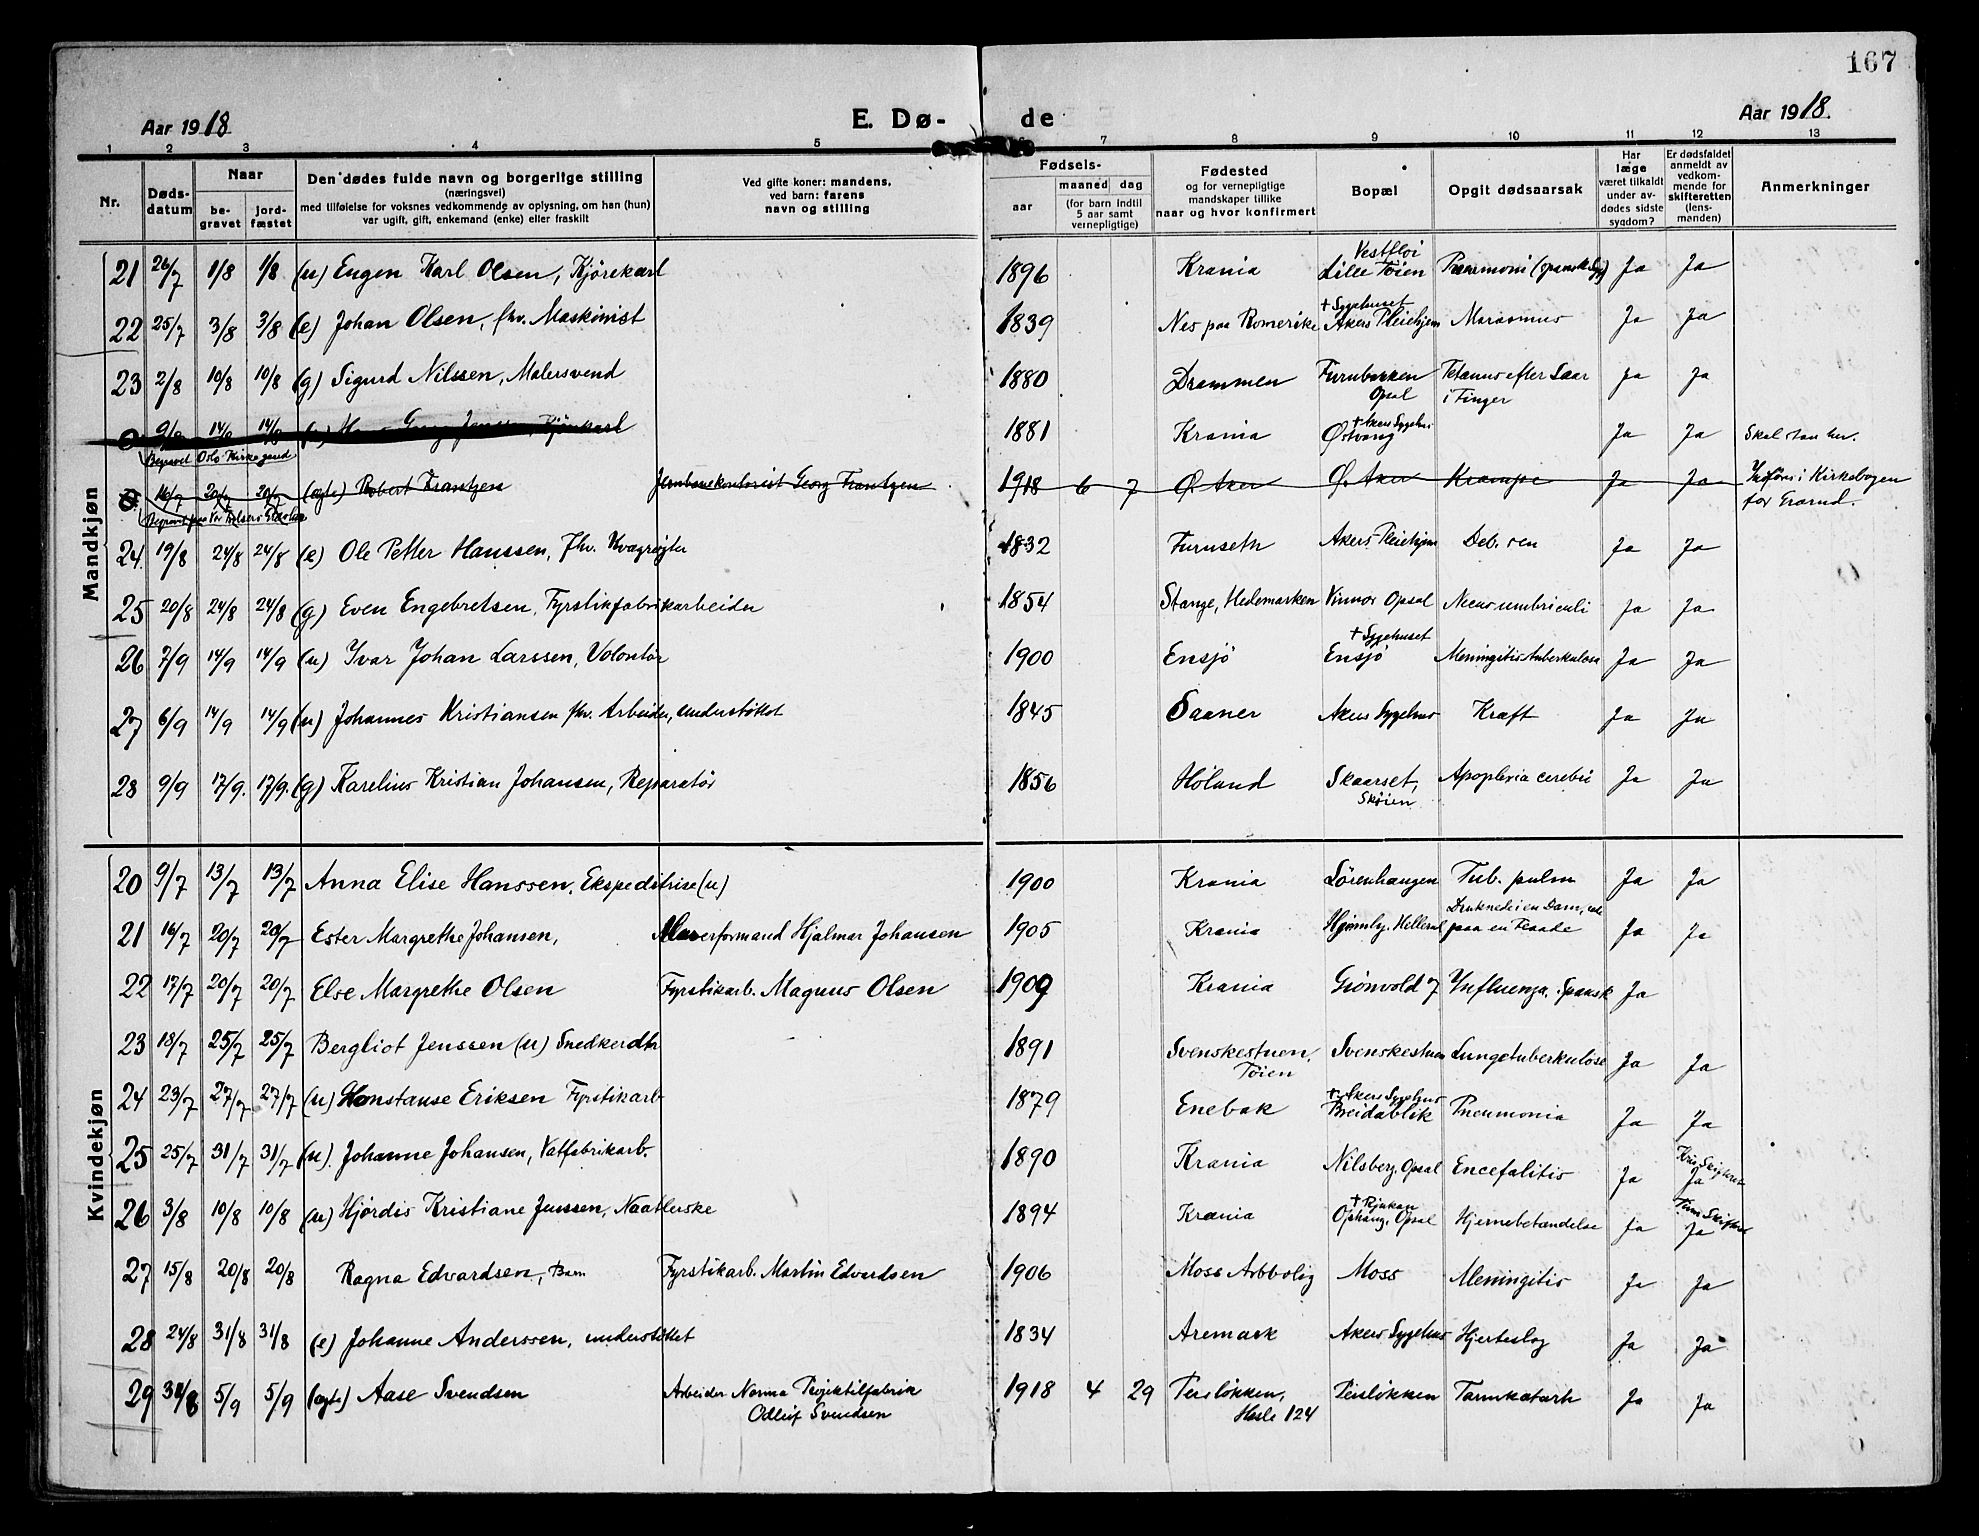 167
Aar 1918
E. Dø-
de
Aar 1918.
1 2 3 4 5 7 8 9 10 11 12 13
Nr.
Døds-
datum
Naar
be-
gravet
jord-
fæstet
Den dødes fulde navn og borgerlige stilling
(næringsvei)
med tilføielse for voksnes vedkommende av oplysning, om han (hun)
var ugift, gift, enkemand (enke) eller fraskilt
Ved gifte koner: mandens,
ved barn: farens
navn og stilling
Fødsels-
aar
maaned dag
(for barn indtil
5 aar samt
vernepligtige)
Fødested
og for vernepligtige
mandskaper tillike
naar og hvor konfirmert
Bopæl
Opgit dødsaarsak
Har
læge
været tilkaldt
under av-
dødes sidste
sygdom?
Er dødsfaldet
anmeldt av
vedkom-
mende for
skifteretten
(lens-
manden)
Anmerkninger
Mandkjøn
21 26/7 1/8 1/8 (u) Eugen Karl Olsen, Kjørekarl 1896 Krania Vestfloi
Lille Töien (spansk syg) Ja Ja
22 25/7 3/8 3/8 (e) Johan Olsen, fhv. Maskinist 1839 Nes paa Romerike + Sygehuset
Akers Pleiehjem Marasmus Ja Ja
23 2/8 10/8 10/8 (g) Sigurd Nilssen, Malersvend 1880 Drammen Furubakken
Opsal Tetanus efter Saar
i Finger Ja Ja
9/8 14/8 14/8 Kjørekarl 1881 Krania + Akers Sygehus
Østvang Ja Ja Skal staa her.
Begravet Oslo Kirkegaard
16/7 20/7 20/7 (ægte) Robert Frantzen Jernbanekontorist Georg Frantzen 1918 6 7 Ø. Aker Ø. Aker Krampe Ja Ja Indføres i Kirkebogen
for Grorud.
Begravet paa Vor Frelsers Gravlun
24. 19/8 24/8 24/8 (e) Ole Petter Hanssen, Fhv. Kvægrøgter 1832 Furuseth Akers Pleiehjem Deb. sen Ja Ja
25 20/8 24/8 24/8 (g) Even Engebretsen, Fyrstikfabrikarbeider 1854 Stange, Hedemarken Vinnor Opsal Ja Ja
26 7/9 14/9 14/9 (u) Ivar Johan Larssen, Volontør 1900 Ensjö + Sygehuset
Ensjö Meningitis tuberkulosa Ja Ja
27 6/9 14/9 14/9 (u) Johannes Kristiansen fhv. Arbeider, understöttet 1845 Saaner Akers Sygehus Kræft Ja Ja
28 9/9 17/9. 17/9. (g) Karelius Kristian Johansen, Reparatör 1856 Höland Skaarset,
Sköien Apoplexia cerebri Ja Ja
Kvindekjøn
20 9/7 13/7 13/7 Anna Elise Hanssen, Ekspeditrise (u) 1900 Krania Lörenhaugen Tub. pulm Ja Ja
21 16/7 20/7 20/7 Ester Margrethe Johansen, Murerformand Hjalmar Johansen 1905 Krania Hjemly. Hellerud Druknede i en Dam, ude
paa en Flaade Ja Ja
22 17/7 20/7 20/7 Else Margrethe Olsen Fyrstikarb. Magnus Olsen 1909 Krania Grönvold 7 Influenza, Spansk Ja
23 18/7 25/7 25/7 Bergliot Jenssen (u) Snedkerdtr 1891 Svenskestuen,
Töien Svenskestuen Lungetuberkulose Ja Ja
24 23/7 27/7 27/7 (u) Konstanse Eriksen Fyrstikarb 1879 Enebak + Akers Sygehus
Breidablik Pneumonia Ja Ja
25 25/7 31/7 31/7 (u). Johanne Johansen, Vatfabrikarb. 1890 Krania Nilsberg, Opsal Encefalitis Ja Ja
26 3/8 10/8 10/8 (u) Hjördis Kristiane Jenssen, Naatlerske 1894 Krania + Rjukan
Ophaug, Opsal Hjernebetændelse Ja Ja
27 15/8 20/8 20/8 Ragna Edvardsen, Barn Fyrstikarb. Martin Edvardsen 1906 Moss Arbbolig Moss Meningitis Ja Ja
28 24/8 31/8 31/8 (e) Johanne Anderssen, understöttet 1834 Aremark Akers Sygehus Hjerteslag Ja Ja
29 31/8 5/9 5/9 (ægte) Aase Svendsen Arbeider Norma Projektilfabrik
Odleif Svendsen 1918 4 29 Peislökken,
Hasle 124 Peislökken Tarmkatarh Ja Ja